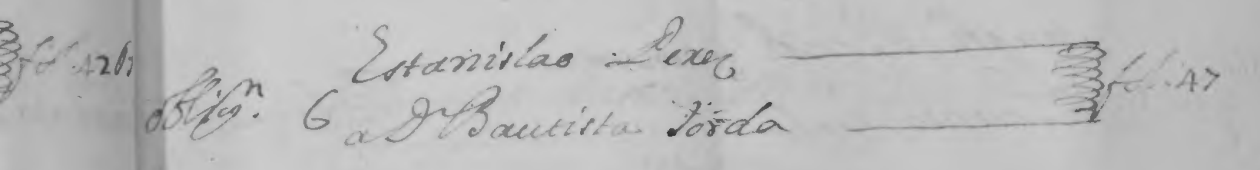 Estanislao Perez
obligⁿ. 6 a Dⁿ Bautista Jorda fol. 47